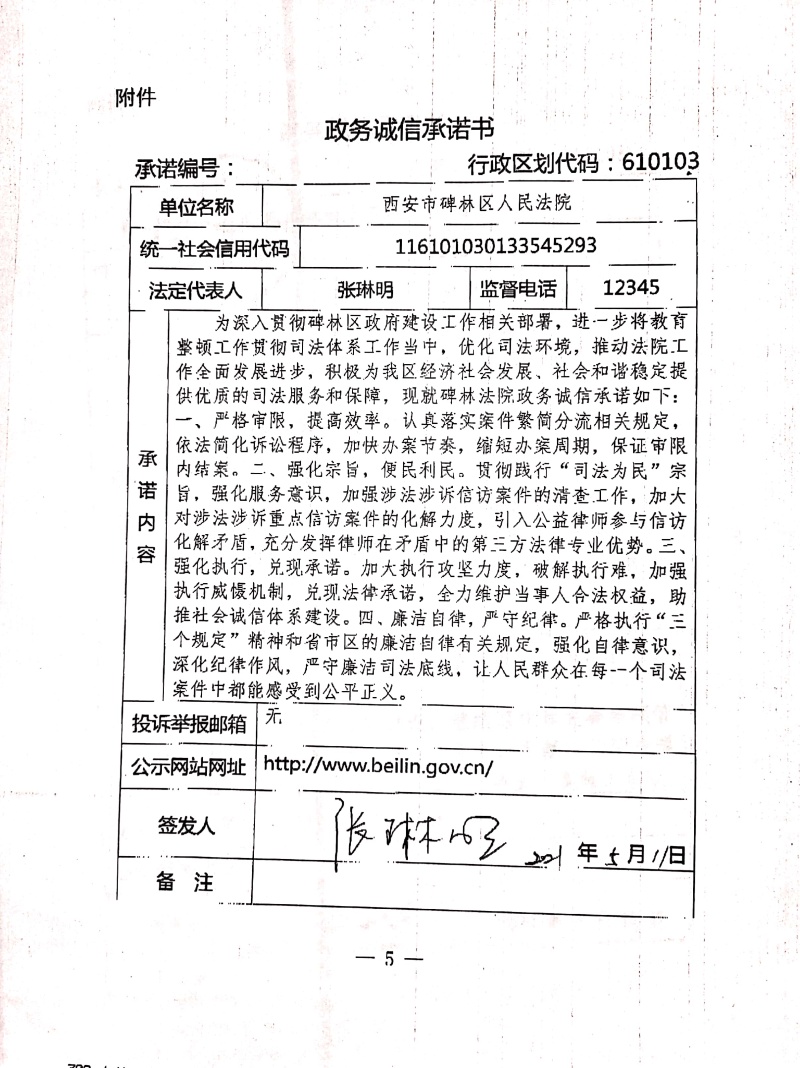 附件
政务诚信承诺书
承诺编号： 行政区划代码：610103
单位名称 西安市碑林区人民法院
统一社会信用代码 116101030133545293
法定代表人 张琳明 监督电话 12345
承诺内容
为深入贯彻碑林区政府建设工作相关部署，进一步将教育
整顿工作贯彻司法体系工作当中，优化司法环境，推动法院工
作全面发展进步，积极为我区经济社会发展、社会和谐稳定提
供优质的司法服务和保障，现就碑林法院政务诚信承诺如下：
一、严格审限，提高效率。认真落实案件繁简分流相关规定，
依法简化诉讼程序，加快办案节奏，缩短办案周期，保证审限
内结案。二、强化宗旨，便民利民。贯彻践行“司法为民”宗
旨，强化服务意识，加强涉法涉诉信访案件的清查工作，加大
对涉法涉诉重点信访案件的化解力度，引入公益律师参与信访
化解矛盾，充分发挥律师在矛盾中的第三方法律专业优势。三、
强化执行，兑现承诺。加大执行攻坚力度，破解执行难，加强
执行威慑机制，兑现法律承诺，全力维护当事人合法权益，助
推社会诚信体系建设。四、廉洁自律，严守纪律。严格执行“三
个规定”精神和省市区的廉洁自律有关规定，强化自律意识，
深化纪律作风，严守廉洁司法底线，让人民群众在每一个司法
案件中都能感受到公平正义。
投诉举报邮箱 无
公示网站网址 http://www.beilin.gov.cn/
签发人 张琳明 2021年5月11日
备 注
— 5 —